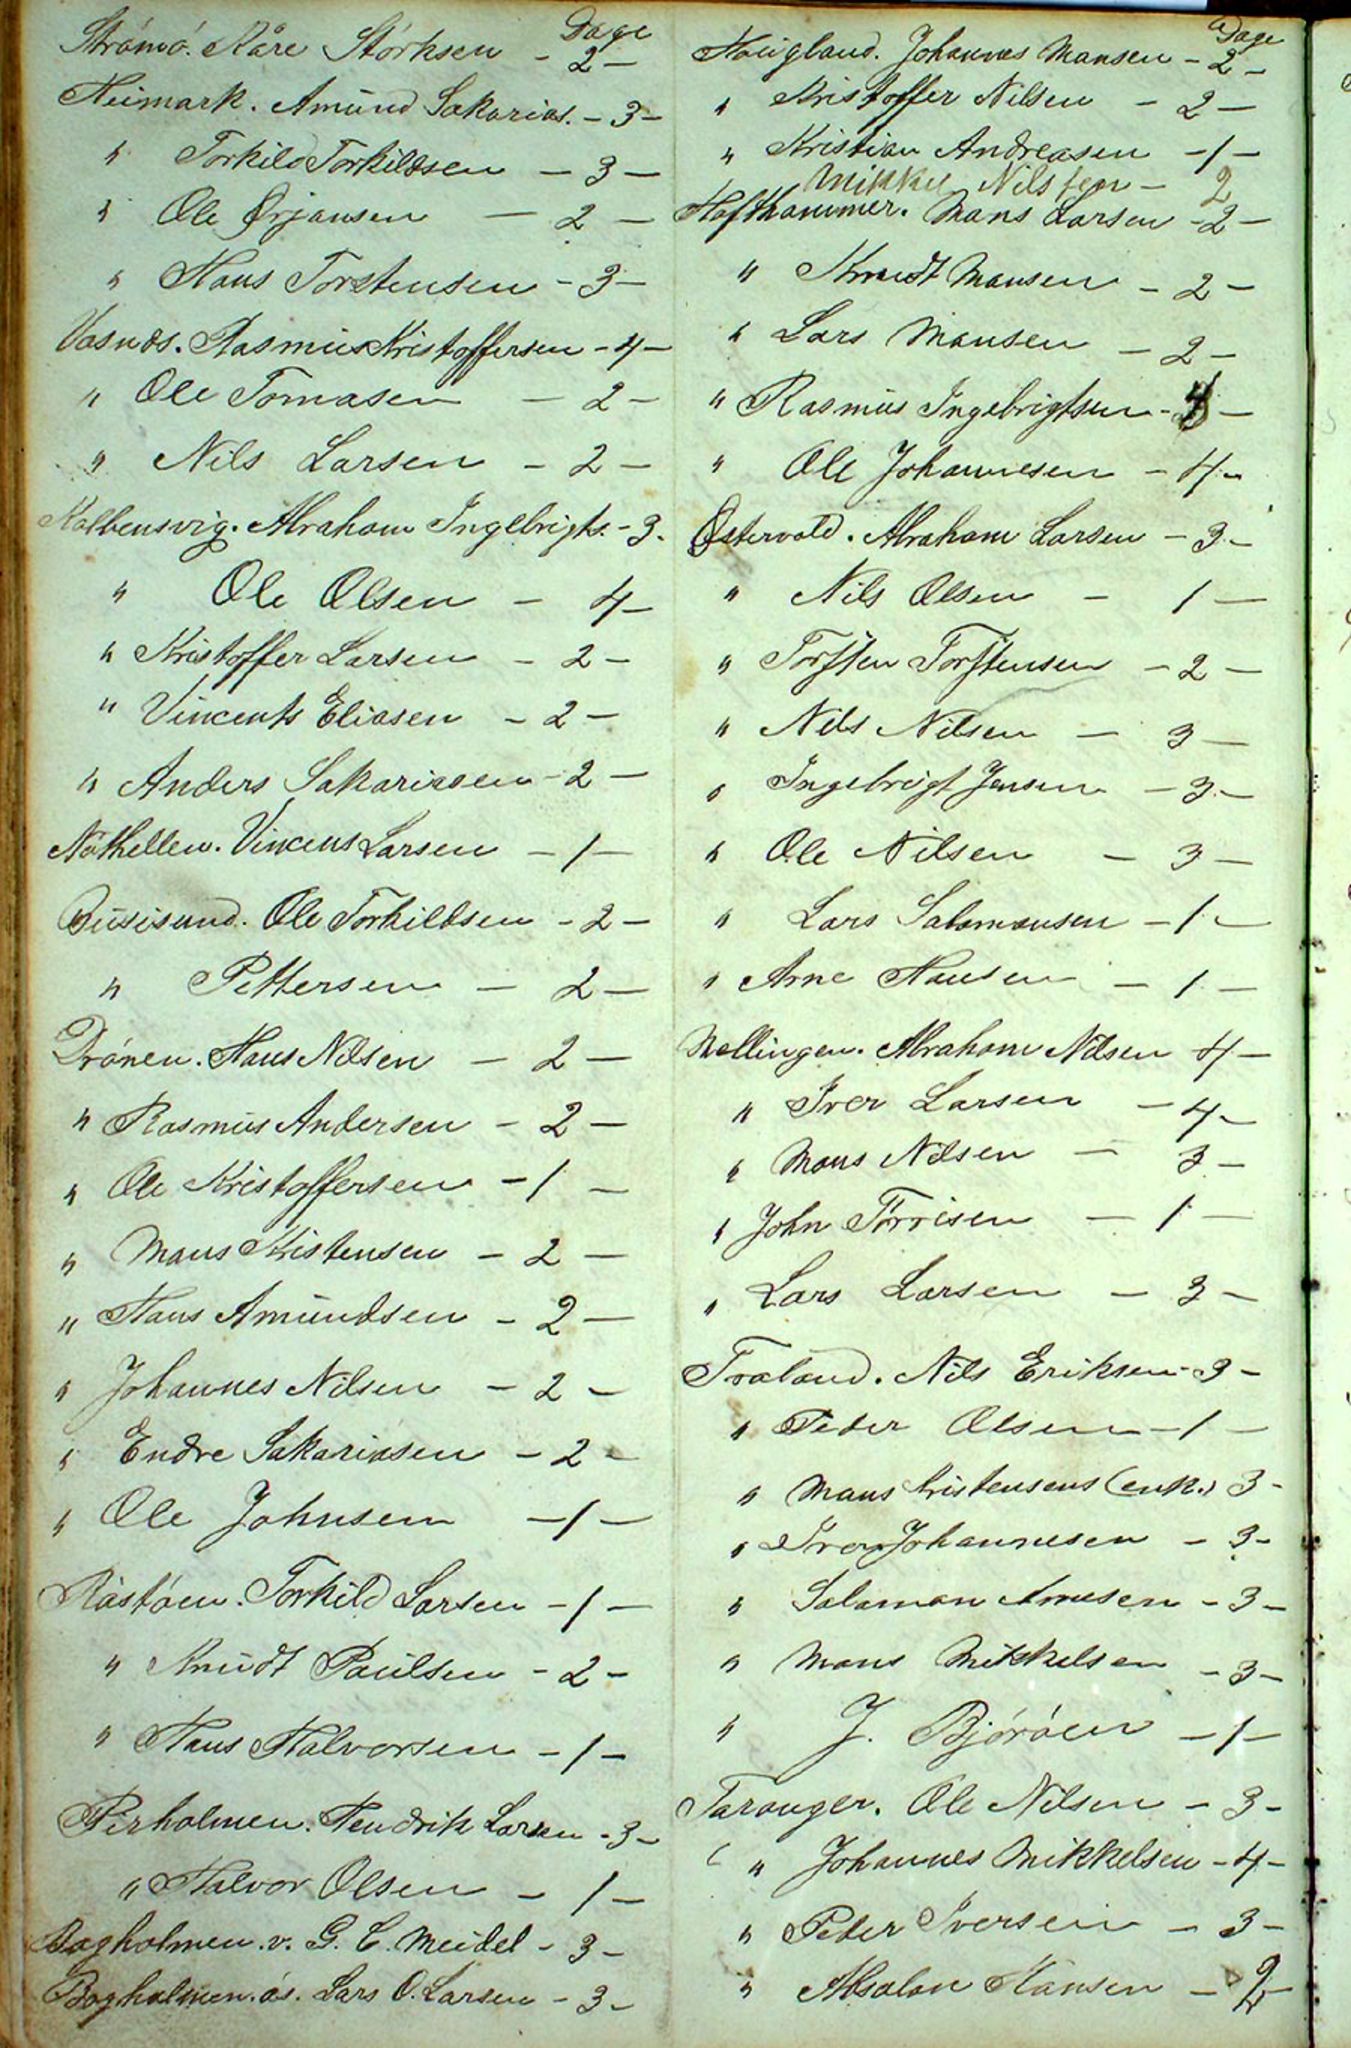 Dage
Strömö. Kåre Störksen - 2 -
Heimark. Amund Sakarias. - 3 -
" Torkild Torkildsen - 3 -
" Ole Örjansen - 2 -
" Hans Torstensen - 3 -
Vasnds. Rasmus Kristoffersen - 4 -
" Ole Tomasen - 2 -
" Nils Larsen - 2 -
Kolbensvig. Abraham Ingebrigts. - 3.
" Ole Olsen - 4 -
" Kristoffer Larsen - 2 -
" Vincents Eliasen - 2 -
" Anders Sakariasen - 2 -
Nöthellen. Vincens Larsen - 1 -
Buisisund. Ole Torkildsen - 2 -
" Pettersen - 2 -
Drönen. Hans Nilsen - 2 -
" Rasmus Andersen - 2 -
" Ole Kristoffersen - 1 -
" Mans Kristensen - 2 -
" Hans Amundsen - 2 -
" Johannes Nilsen - 2 -
" Endre Sakariasen - 2 -
" Ole Johnsen - 1 -
Rostöen. Torkild Larsen - 1 -
" Knudt Paulsen - 2 -
" Hans Halvorsen - 1 -
Perholmen. Hendrik Larsen - 3 -
" Halvor Olsen - 1 -
Bogholmen. v. G. C. Meidel - 3 -
Bogholmen. ös. Lars O. Larsen - 3 -
Dage
Hougland. Johannes Mansen - 2 -
" Kristoffer Nilsen - 2 -
" Kristian Andreasen - 1 -
Mikkel Nilssen - 2
Hofthammer. Mans Larsen - 2 -
" Knudt Mansen - 2 -
" Lars Mansen - 2 -
" Rasmus Ingebrigtsen - 4 -
" Ole Johannesen - 4 -
Östervold. Abraham Larsen - 3 -
" Nils Olsen - 1 -
" Torsten Torstensen - 2 -
" Nils Nilsen - 3 -
" Ingebrigt Jensen - 3 -
" Ole Nilsen - 3 -
" Lars Salomonsen - 1 -
" Arne Hansen - 1 -
Mellingen. Abraham Nilsen 4 -
" Iver Larsen - 4 -
" Mans Nilsen - 3 -
" John Törrisen - 1 -
" Lars Larsen - 3 -
Troland. Nils Eriksen - 3 -
" Peder Olsen - 1 -
" Mans Kristensens (enk.) 3 -
" Iver Johannesen - 3 -
" Salamon Arnesen - 3 -
" Mans Mikkelsen - 3 -
" J. Björöen - 1 -
Taranger. Ole Nilsen - 3 -
" Johannes Mikkelsen - 4 -
" Peder Iversen - 3 -
" Absalon Hansen - 2 -